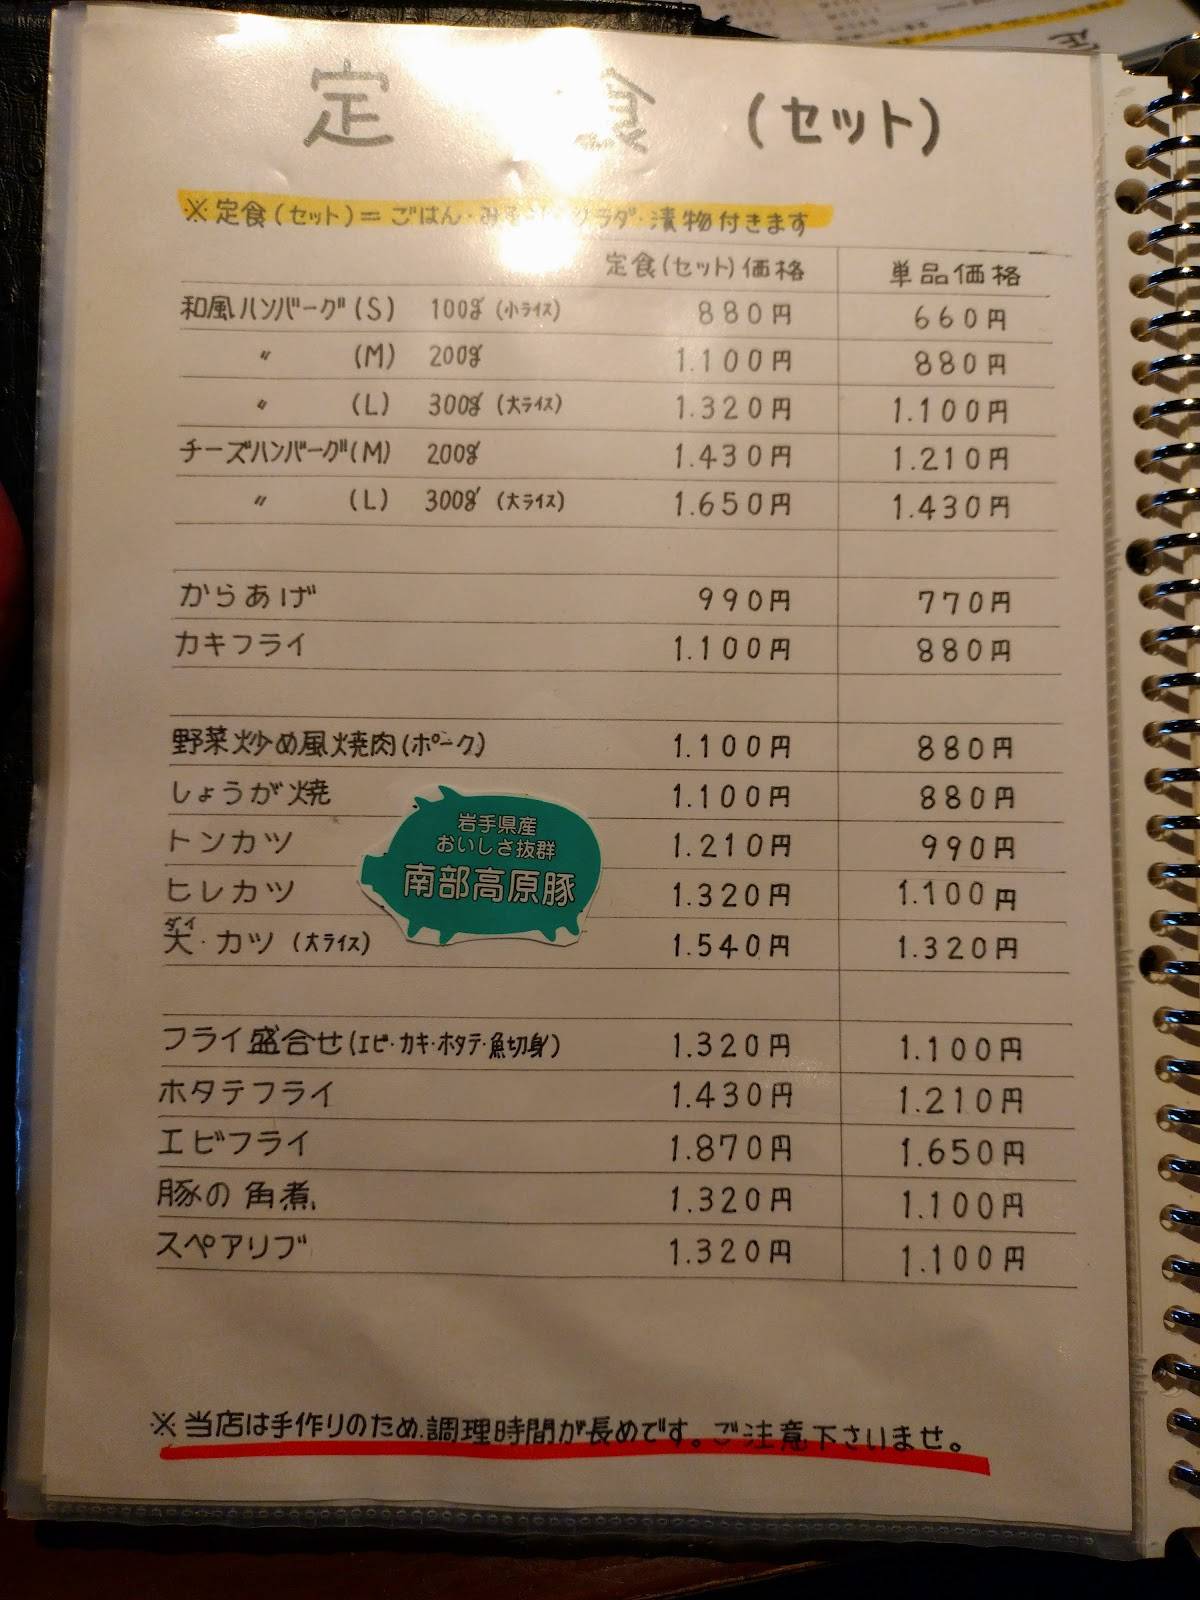 定 食 (セット)
※定食(セット)=ごはん・みそ汁・サラダ・漬物付きます
定食(セット)価格 単品価格
和風ハンバーグ(S) 100g (小ライス) 880円 660円
〃 (M) 200g 1.100円 880円
〃 (L) 300g (大ライス) 1.320円 1.100円
チーズハンバーグ(M) 200g 1.430円 1.210円
〃 (L) 300g (大ライス) 1.650円 1.430円
からあげ 990円 770円
カキフライ 1.100円 880円
野菜炒め風焼肉(ポーク) 1.100円 880円
しょうが焼 1.100円 880円
トンカツ 1.210円 990円
ヒレカツ 1.320円 1.100円
ダイ
大・カツ (大ライス) 1.540円 1.320円
岩手県産
おいしさ抜群
南部高原豚
フライ盛合せ(エビ・カキ・ホタテ・魚切身) 1.320円 1.100円
ホタテフライ 1.430円 1.210円
エビフライ 1.870円 1.650円
豚の角煮 1.320円 1.100円
スペアリブ 1.320円 1.100円
※当店は手作りのため、調理時間が長めです。ご注意下さいませ。